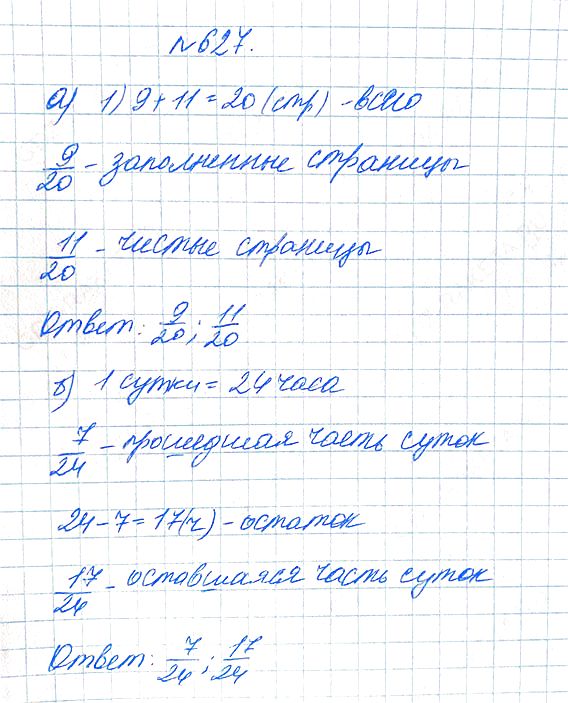 №627.
а) 1) 9 + 11 = 20 (стр) - всего
9/20 - заполненные страницы
11/20 - чистые страницы
Ответ: 9/20; 11/20
б) 1 сутки = 24 часа
7/24 - прошедшая часть суток
24 - 7 = 17(ч) - остаток
17/24 - оставшаяся часть суток
Ответ: 7/24; 17/24